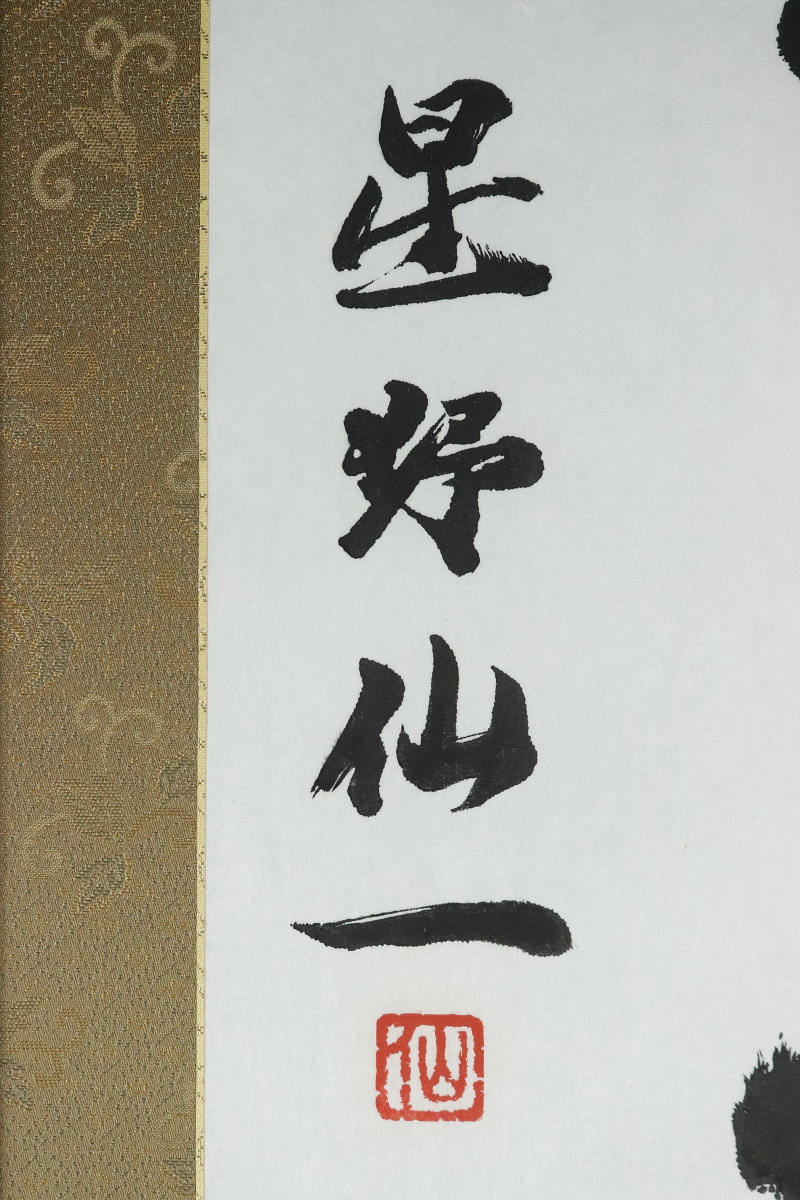 星野仙一
仙